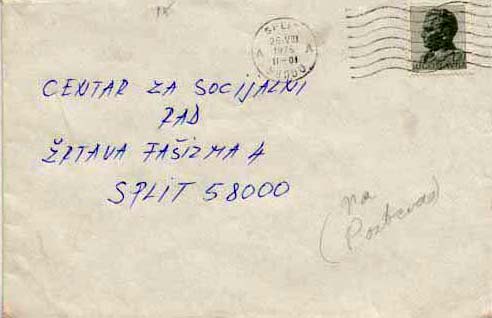 SPLIT
26.VIII
1975
A A
11-01
58000
CENTAR ZA SOCIJALNI
RAD
ŽRTAVA FAŠIZMA 4
SPLIT 58000
(na